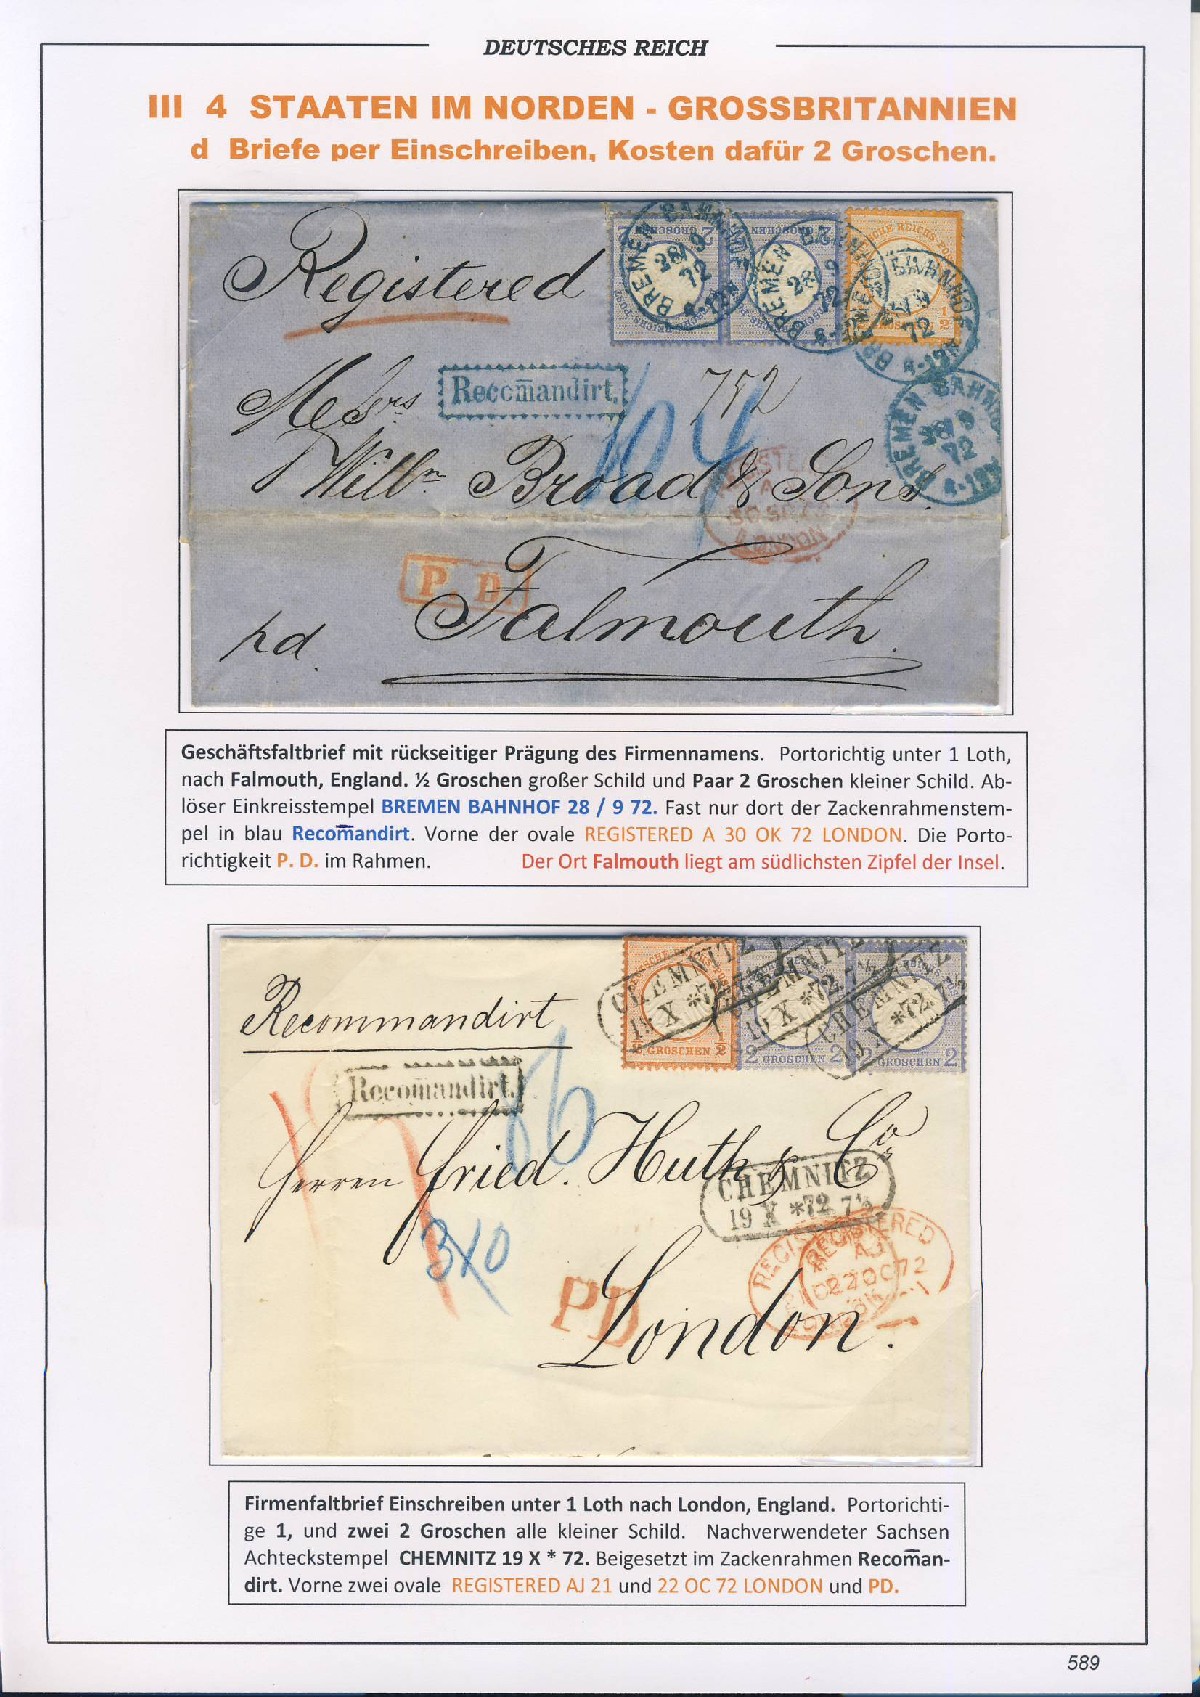 DEUTSCHES REICH
III 4 STAATEN IM NORDEN - GROSSBRITANNIEN
d Briefe per Einschreiben, Kosten dafür 2 Groschen.
BREMEN BAHNHOF 28/9 72
BREMEN 28/9 72
BAHNHOF 72
Registered
Recom̄andirt.
752
BREMEN BAHNHOF 72
Messrs
Willm Broad & Sons
LONDON
P. D.
Falmouth
pd.
Geschäftsfaltbrief mit rückseitiger Prägung des Firmennamens. Portorichtig unter 1 Loth,
nach Falmouth, England. ½ Groschen großer Schild und Paar 2 Groschen kleiner Schild. Ab-
löser Einkreisstempel BREMEN BAHNHOF 28 / 9 72. Fast nur dort der Zackenrahmenstem-
pel in blau Recom̄andirt. Vorne der ovale REGISTERED A 30 OK 72 LONDON. Die Porto-
richtigkeit P. D. im Rahmen. Der Ort Falmouth liegt am südlichsten Zipfel der Insel.
CHEMNITZ 19 X *72
CHEMNITZ 19 X *72 7½
CHEMNITZ 19 X *72 7½
½ GROSCHEN ½
2 GROSCHEN 2
GROSCHEN 2
Recommandirt
Recom̄andirt.
Herren Fried. Huth & Co
CHEMNITZ
19 X *72 7½
REGISTERED
22 OC 72
PD
London.
Firmenfaltbrief Einschreiben unter 1 Loth nach London, England. Portorichti-
ge 1, und zwei 2 Groschen alle kleiner Schild. Nachverwendeter Sachsen
Achteckstempel CHEMNITZ 19 X * 72. Beigesetzt im Zackenrahmen Recom̄an-
dirt. Vorne zwei ovale REGISTERED AJ 21 und 22 OC 72 LONDON und PD.
589